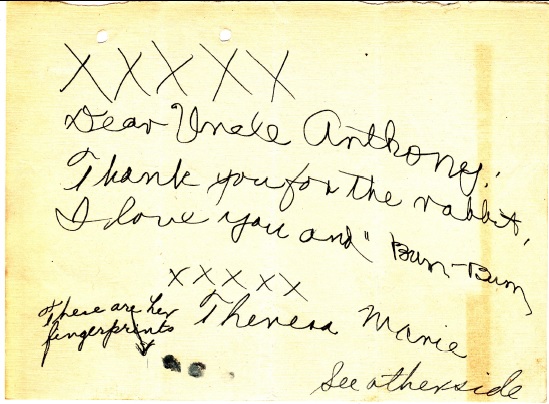 X X X X X
Dear Uncle Anthony!
Thank you for the rabbit,
I love you and "Bum-Bum
X X X X X
Theresa Marie
These are her
fingerprints
See otherside